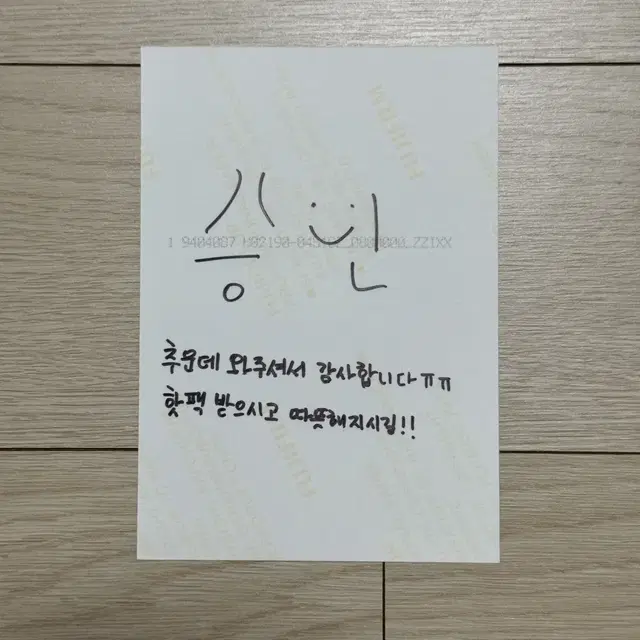 승민
1 9404087
추운데 와주셔서 감사합니다ㅠㅠ
핫팩 받으시고 따뜻해지시길!!